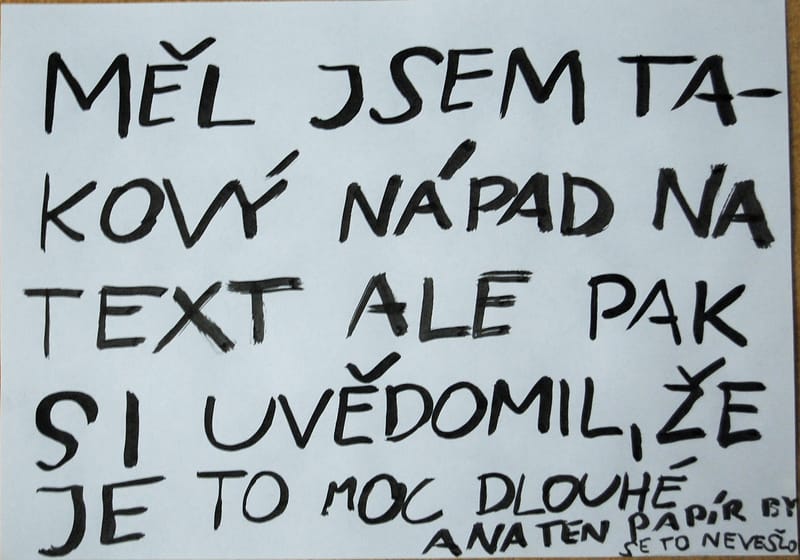 MĚL JSEM TA-
KOVÝ NÁPAD NA
TEXT ALE PAK
SI UVĚDOMIL, ŽE
JE TO MOC DLOUHÉ
A NA TEN PAPÍR BY
SE TO NEVEŠLO